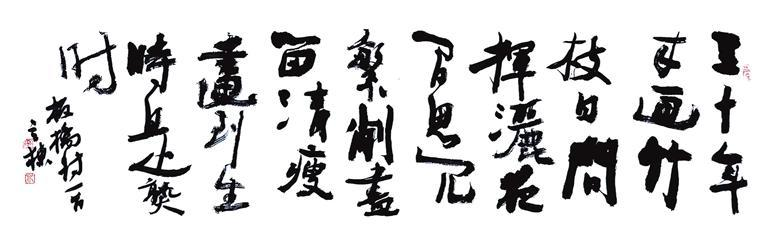 三十年
来画竹
枝日間
揮灑夜
间思冗
繁削盡
留清瘦
畫到生
時是熟
时
板橋诗一首